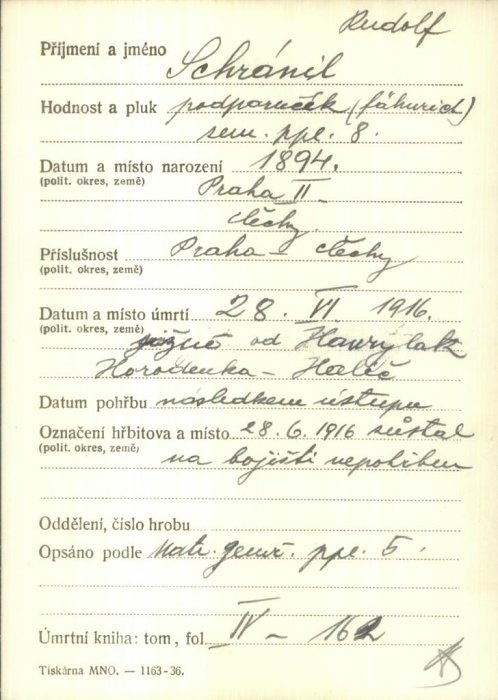 Rudolf
Příjmení a jméno Schránil
Hodnost a pluk podporučík (fähnrich)
sem. ppl. 8.
Datum a místo narození 1894.
(polit. okres, země) Praha II –
Čechy
Příslušnost Praha – Čechy
(polit. okres, země)
Datum a místo úmrtí 28. VI 1916.
(polit. okres, země) jižně od Hawrylak
Horodenka – Halič
Datum pohřbu následkem ústupu
Označení hřbitova a místo 28. 6. 1916 zůstal
(polit. okres, země) na bojišti nepohřben
Oddělení, číslo hrobu
Opsáno podle Matr. ppl. 5.
Úmrtní kniha: tom, fol. IV – 162
Tiskárna MNO. — 1163-36.